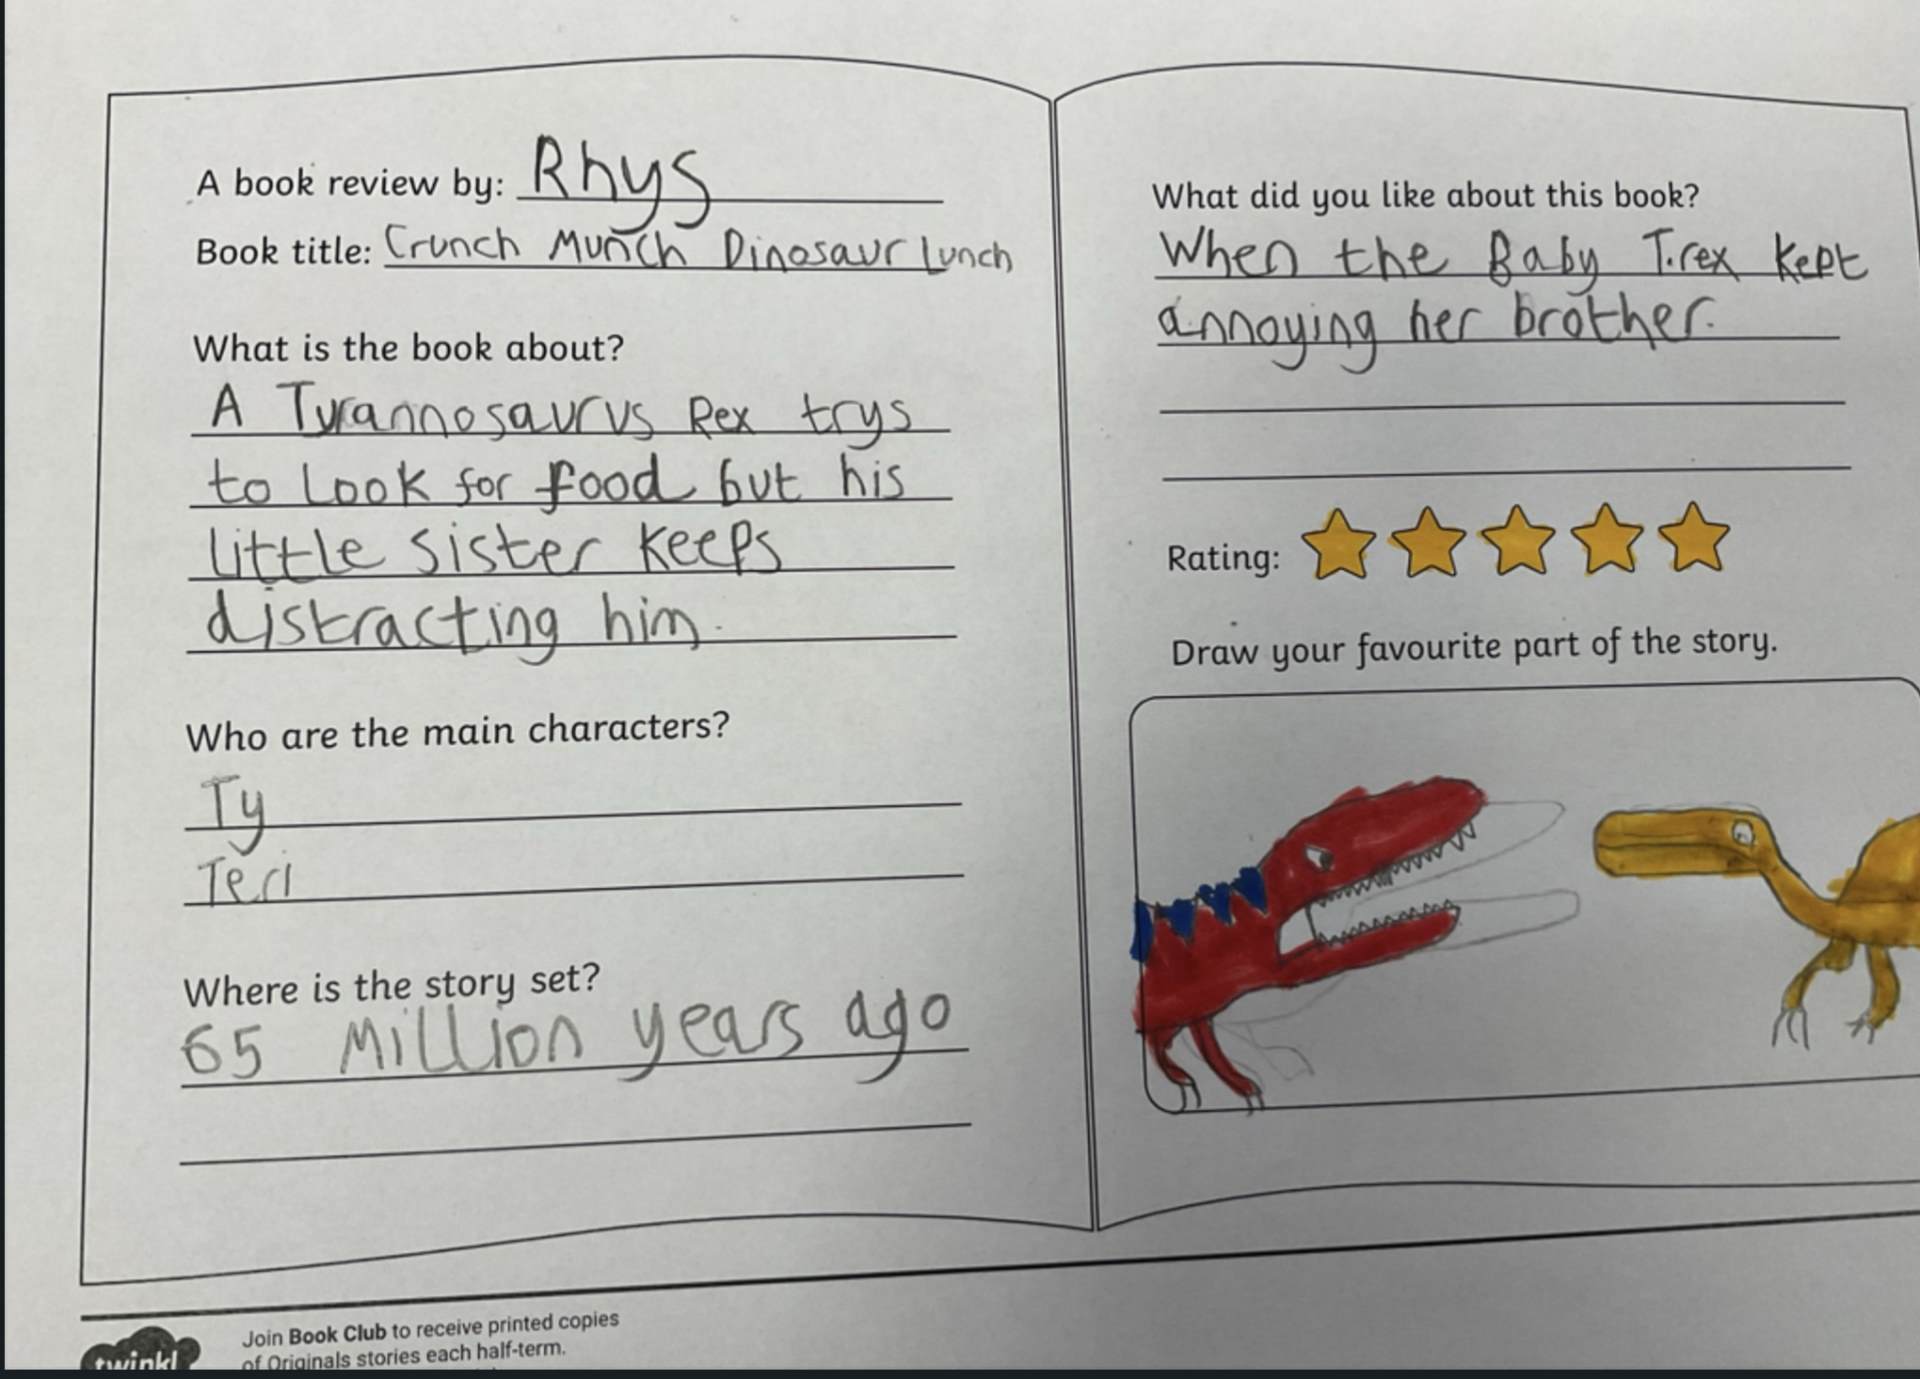 A book review by: Rhys
Book title: Crunch Munch Dinosaur Lunch
What is the book about?
A Tyrannosaurus Rex trys
to Look for food but his
little sister keeps
distracting him.
Who are the main characters?
Ty
Teri
Where is the story set?
65 Million years ago
What did you like about this book?
When the Baby T.rex kept
annoying her brother.
Rating:
Draw your favourite part of the story.
twinkl
Join Book Club to receive printed copies
of Originals stories each half-term.